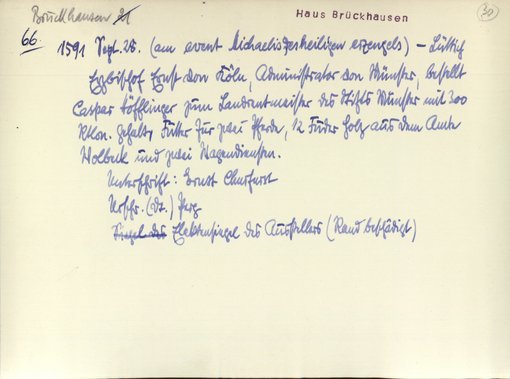 Brückhausen 21
Haus Brückhausen
30
66
1591 Sept. 28. (am avent Michaelis des heiligen erzengels) – Lüttich
Erzbischof Ernst von Köln, Administrator von Münster, bestellt
Caspar Höfflinger zum Landrentmeister des Stifts Münster mit 300
Rtlr. Gehalt, Futter für zwei Pferde, 12 Fuder Holz aus dem Amte
Wolbeck und zwei Wagendiensten.
Unterschrift: Ernst Churfurst
Urschr. (dt.) Perg
Siegel des Elektensiegel des Ausstellers (Rand beschädigt)